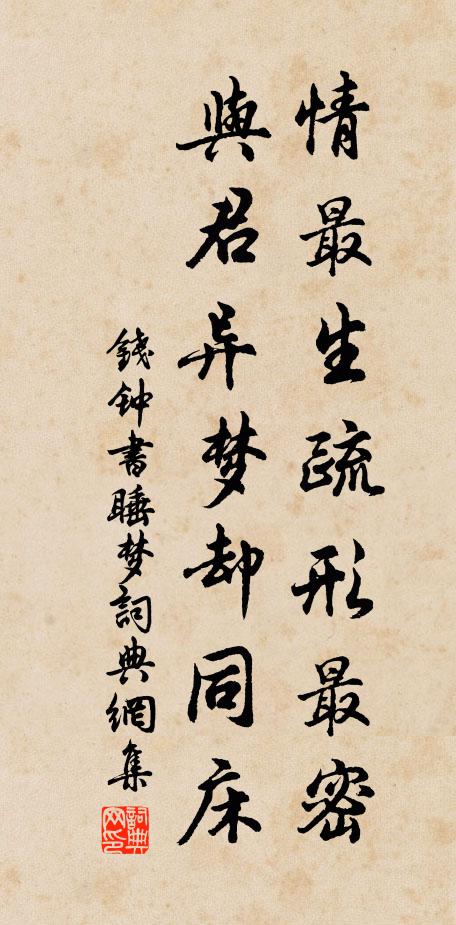 情最生疏形最密
與君异梦却同床
錢钟書睡梦詞典網集
詞典网印